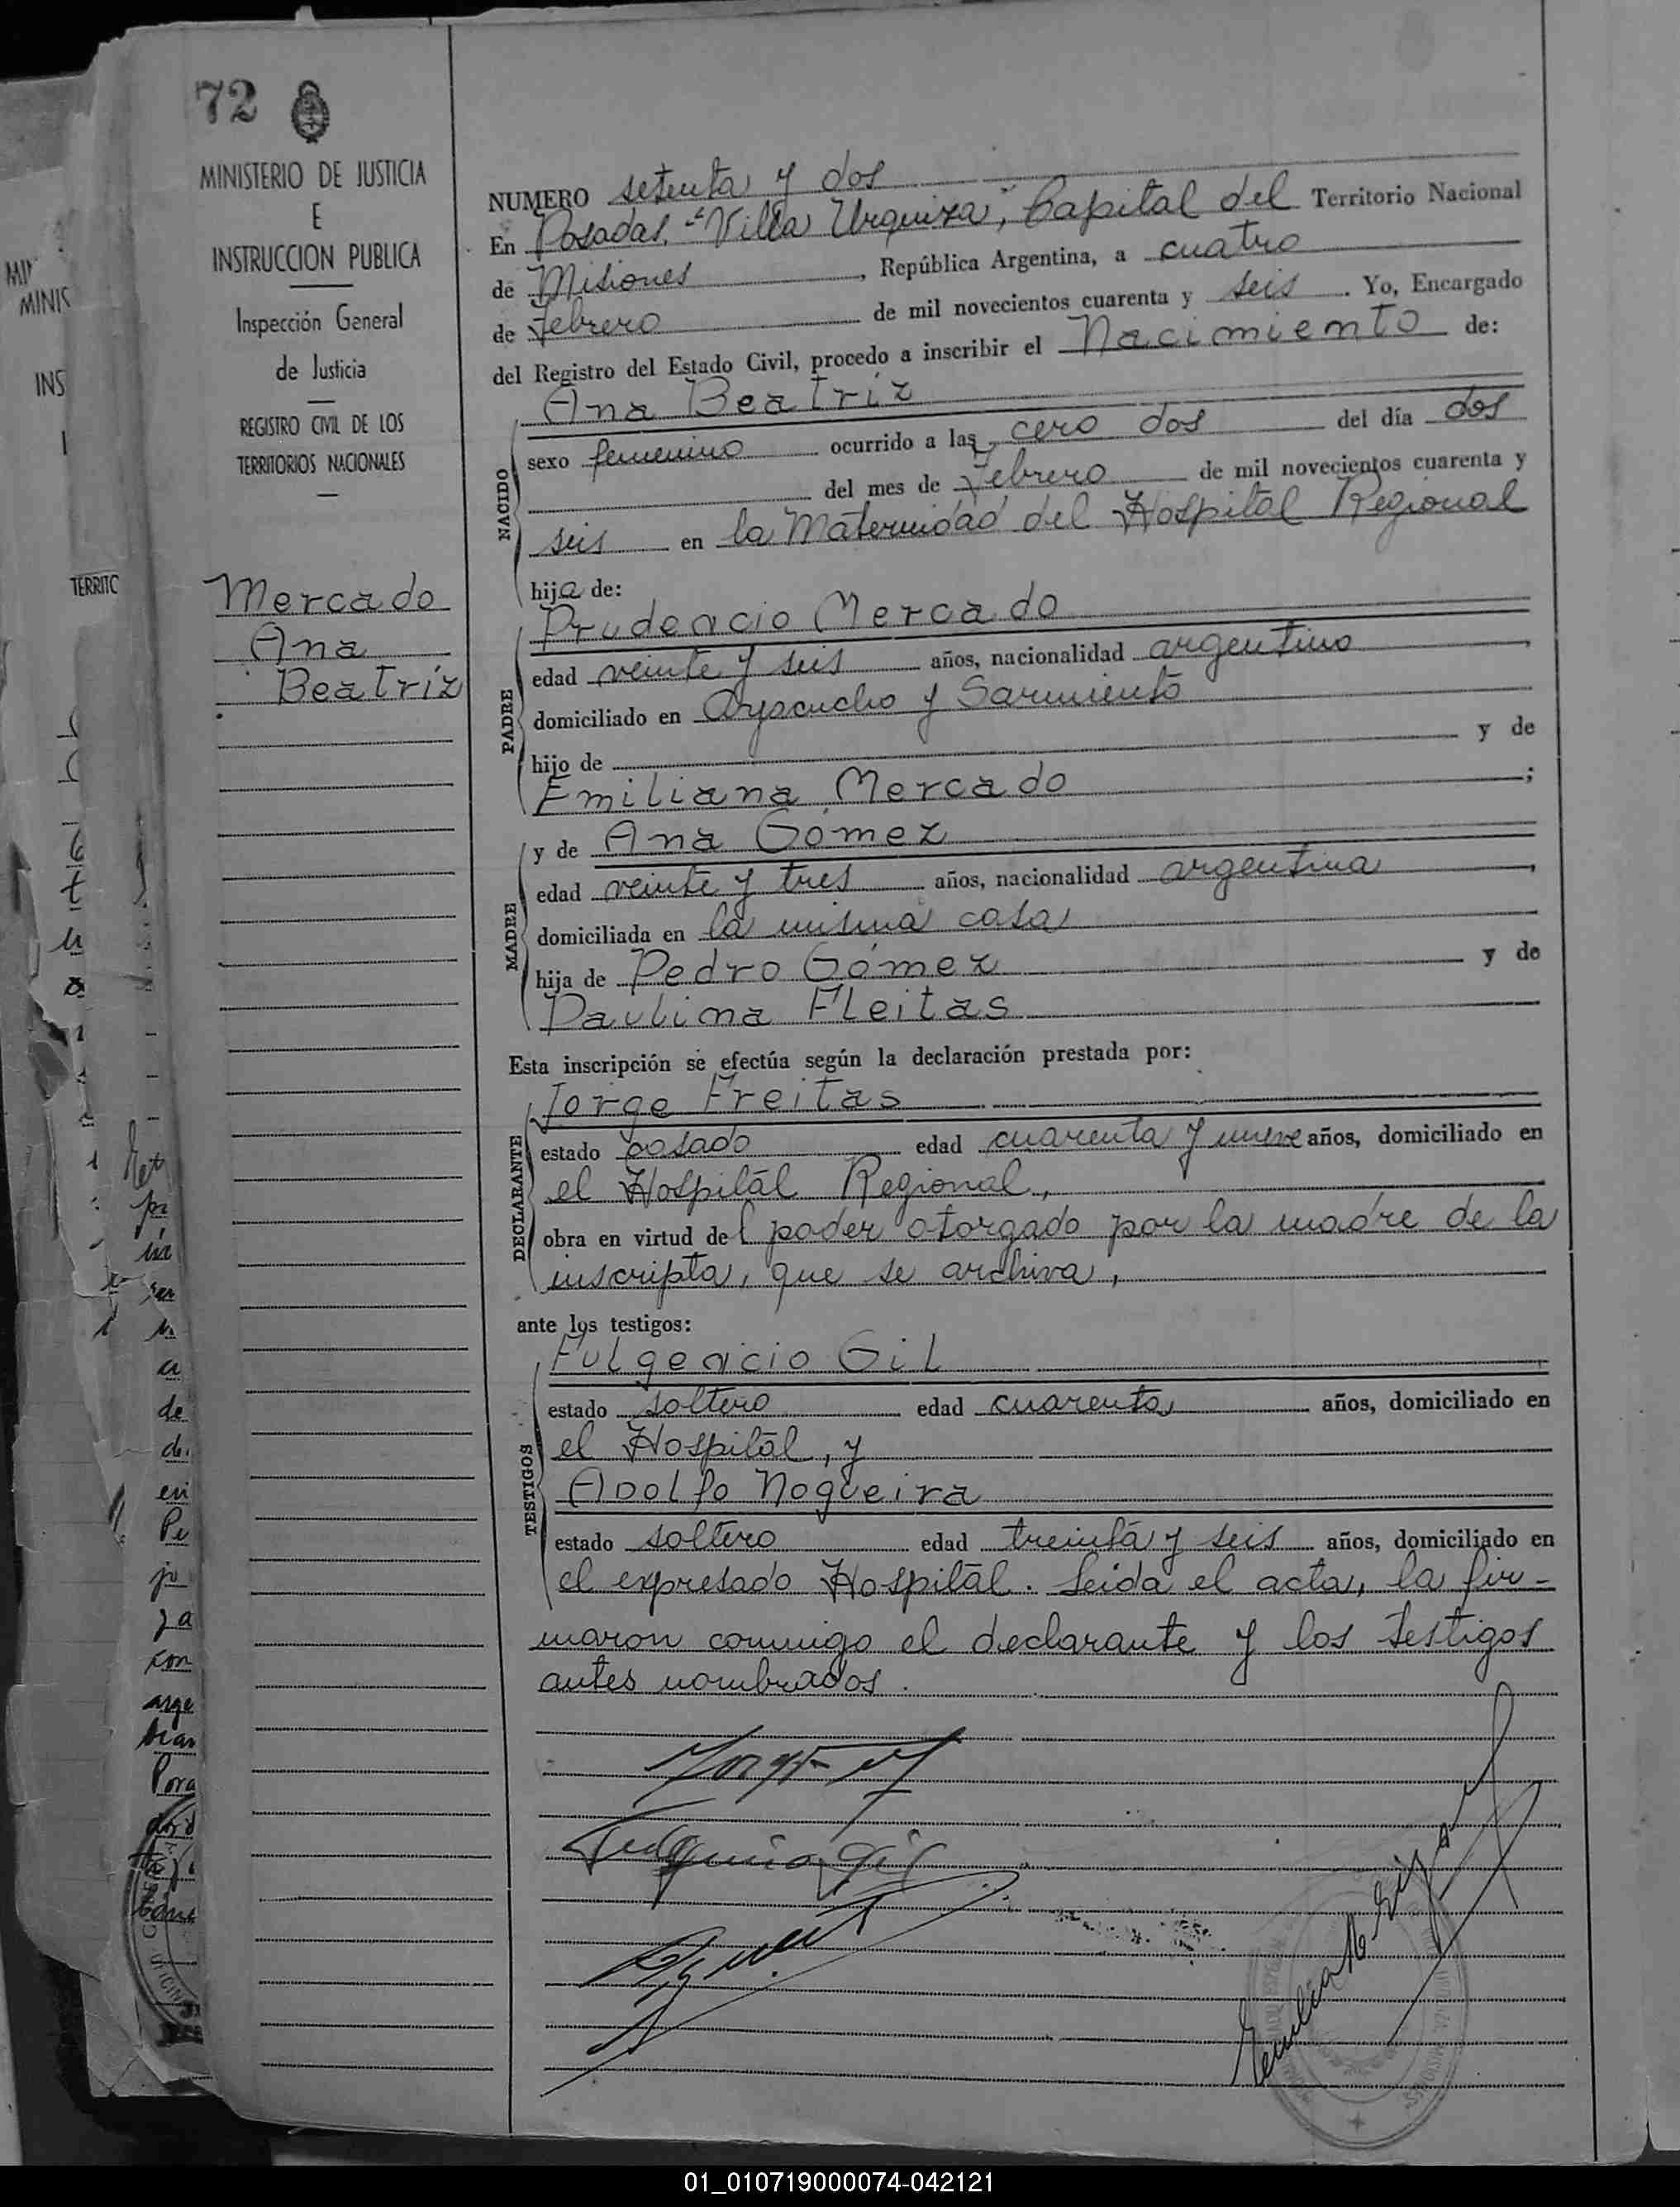 72
MINISTERIO DE JUSTICIA
E
INSTRUCCION PUBLICA
Inspección General
de Justicia
REGISTRO CIVIL DE LOS
TERRITORIOS NACIONALES
Mercado
Ana
Beatríz
NUMERO setenta y dos
En Posadas, "Villa Urquiza", Capital del Territorio Nacional
de Misiones, República Argentina, a cuatro
de Febrero de mil novecientos cuarenta y seis. Yo, Encargado
del Registro del Estado Civil, procedo a inscribir el Nacimiento de:
NACIDO
Ana Beatríz
sexo femenino ocurrido a las cero dos del día dos
del mes de Febrero de mil novecientos cuarenta y
seis en la Maternidad del Hospital Regional
hija de:
PADRE
Prudencio Mercado
edad veinte y seis años, nacionalidad argentino,
domiciliado en Ayacucho y Sarmiento
hijo de y de
Emiliana Mercado;
MADRE
y de Ana Gómez
edad veinte y tres años, nacionalidad argentina,
domiciliada en la misma casa
hija de Pedro Gómez y de
Paulina Fleitas
Esta inscripción se efectúa según la declaración prestada por:
DECLARANTE
Jorge Freitas
estado casado edad cuarenta y nueve años, domiciliado en
el Hospital Regional,
obra en virtud del poder otorgado por la madre de la
inscripta, que se archiva,
ante los testigos:
TESTIGOS
Fulgencio Gil
estado soltero edad cuarenta años, domiciliado en
el Hospital, y
Adolfo Nogueira
estado soltero edad treinta y seis años, domiciliado en
el expresado Hospital. Leida el acta, la fir-
maron conmigo el declarante y los testigos
antes nombrados.
01_010719000074-042121